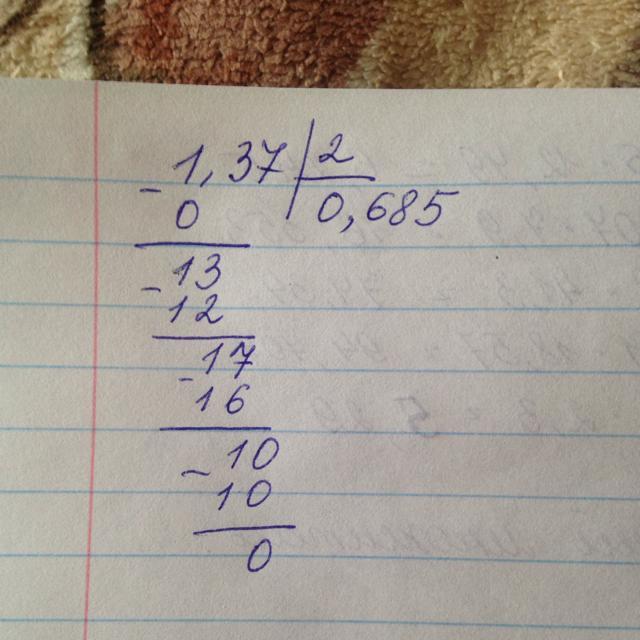 - 1,37 | 2
0 0,685
- 13
12
- 17
16
- 10
10
0